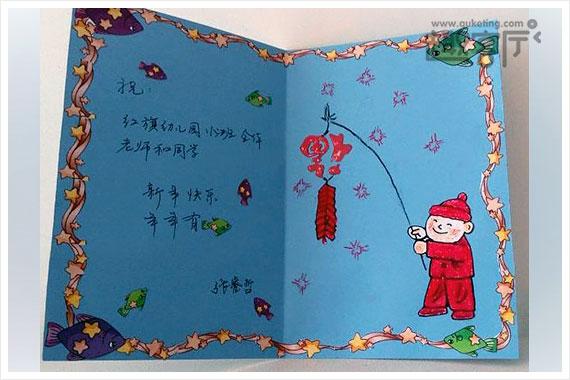 www.quketing.com
客厅
祝：
红旗幼儿园小班全体
老师和同学
新年快乐
年年有
张哲